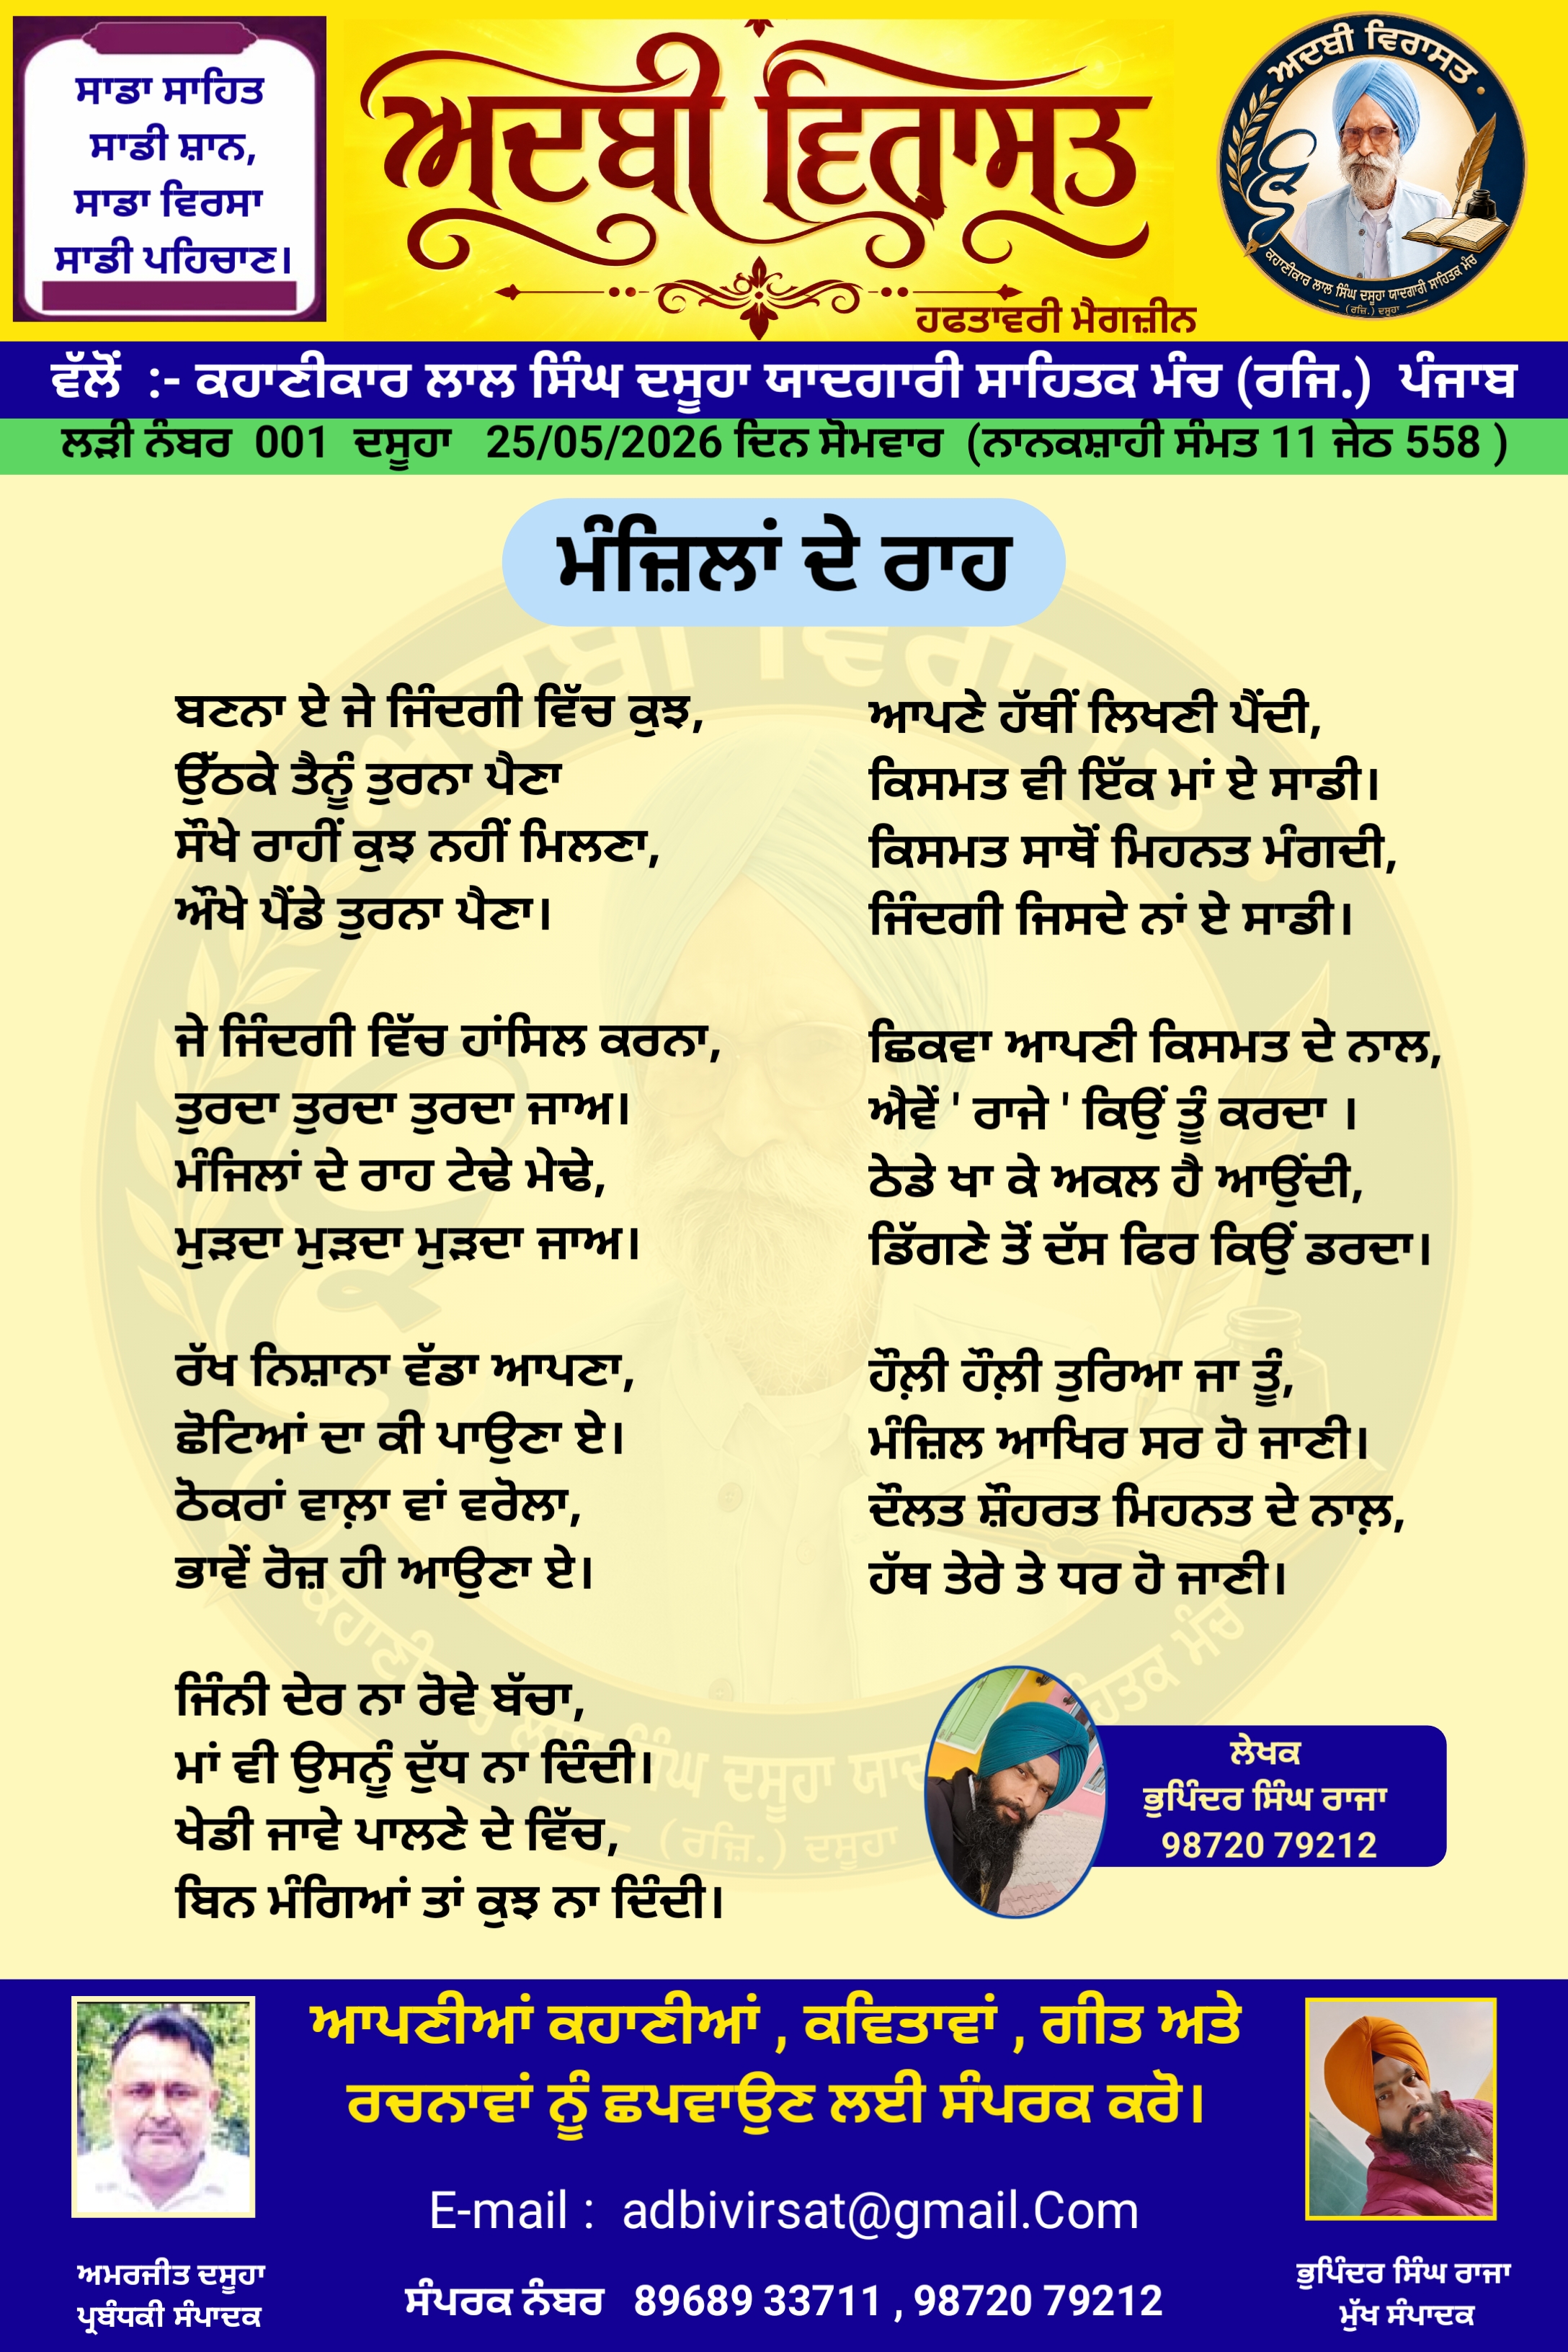 ਸਾਡਾ ਸਾਹਿਤ
ਸਾਡੀ ਸ਼ਾਨ,
ਸਾਡਾ ਵਿਰਸਾ
ਸਾਡੀ ਪਹਿਚਾਣ।
ਅਦਬੀ ਵਿਰਾਸਤ
ਹਫਤਾਵਰੀ ਮੈਗਜ਼ੀਨ
ਅਦਬੀ ਵਿਰਾਸਤ
ਕਹਾਣੀਕਾਰ ਲਾਲ ਸਿੰਘ ਦਸੂਹਾ ਯਾਦਗਾਰੀ ਸਾਹਿਤਕ ਮੰਚ
(ਰਜ਼ਿ.) ਦਸੂਹਾ
ਵੱਲੋਂ :- ਕਹਾਣੀਕਾਰ ਲਾਲ ਸਿੰਘ ਦਸੂਹਾ ਯਾਦਗਾਰੀ ਸਾਹਿਤਕ ਮੰਚ (ਰਜਿ.) ਪੰਜਾਬ
ਲੜੀ ਨੰਬਰ 001 ਦਸੂਹਾ 25/05/2026 ਦਿਨ ਸੋਮਵਾਰ (ਨਾਨਕਸ਼ਾਹੀ ਸੰਮਤ 11 ਜੇਠ 558 )
ਮੰਜ਼ਿਲਾਂ ਦੇ ਰਾਹ
ਬਣਨਾ ਏ ਜੇ ਜਿੰਦਗੀ ਵਿੱਚ ਕੁਝ,
ਉੱਠਕੇ ਤੈਨੂੰ ਤੁਰਨਾ ਪੈਣਾ
ਸੌਖੇ ਰਾਹੀਂ ਕੁਝ ਨਹੀਂ ਮਿਲਣਾ,
ਔਖੇ ਪੈਂਡੇ ਤੁਰਨਾ ਪੈਣਾ।
ਜੇ ਜਿੰਦਗੀ ਵਿੱਚ ਹਾਂਸਿਲ ਕਰਨਾ,
ਤੁਰਦਾ ਤੁਰਦਾ ਤੁਰਦਾ ਜਾਅ।
ਮੰਜਿਲਾਂ ਦੇ ਰਾਹ ਟੇਢੇ ਮੇਢੇ,
ਮੁੜਦਾ ਮੁੜਦਾ ਮੁੜਦਾ ਜਾਅ।
ਰੱਖ ਨਿਸ਼ਾਨਾ ਵੱਡਾ ਆਪਣਾ,
ਛੋਟਿਆਂ ਦਾ ਕੀ ਪਾਉਣਾ ਏ।
ਠੋਕਰਾਂ ਵਾਲ਼ਾ ਵਾਂ ਵਰੋਲਾ,
ਭਾਵੇਂ ਰੋਜ਼ ਹੀ ਆਉਣਾ ਏ।
ਜਿੰਨੀ ਦੇਰ ਨਾ ਰੋਵੇ ਬੱਚਾ,
ਮਾਂ ਵੀ ਉਸਨੂੰ ਦੁੱਧ ਨਾ ਦਿੰਦੀ।
ਖੇਡੀ ਜਾਵੇ ਪਾਲਣੇ ਦੇ ਵਿੱਚ,
ਬਿਨ ਮੰਗਿਆਂ ਤਾਂ ਕੁਝ ਨਾ ਦਿੰਦੀ।
ਆਪਣੇ ਹੱਥੀਂ ਲਿਖਣੀ ਪੈਂਦੀ,
ਕਿਸਮਤ ਵੀ ਇੱਕ ਮਾਂ ਏ ਸਾਡੀ।
ਕਿਸਮਤ ਸਾਥੋਂ ਮਿਹਨਤ ਮੰਗਦੀ,
ਜਿੰਦਗੀ ਜਿਸਦੇ ਨਾਂ ਏ ਸਾਡੀ।
ਛਿਕਵਾ ਆਪਣੀ ਕਿਸਮਤ ਦੇ ਨਾਲ,
ਐਵੇਂ ' ਰਾਜੇ ' ਕਿਉਂ ਤੂੰ ਕਰਦਾ ।
ਠੇਡੇ ਖਾ ਕੇ ਅਕਲ ਹੈ ਆਉਂਦੀ,
ਡਿੱਗਣੇ ਤੋਂ ਦੱਸ ਫਿਰ ਕਿਉਂ ਡਰਦਾ।
ਹੌਲ਼ੀ ਹੌਲ਼ੀ ਤੁਰਿਆ ਜਾ ਤੂੰ,
ਮੰਜ਼ਿਲ ਆਖਿਰ ਸਰ ਹੋ ਜਾਣੀ।
ਦੌਲਤ ਸ਼ੌਹਰਤ ਮਿਹਨਤ ਦੇ ਨਾਲ਼,
ਹੱਥ ਤੇਰੇ ਤੇ ਧਰ ਹੋ ਜਾਣੀ।
ਲੇਖਕ
ਭੁਪਿੰਦਰ ਸਿੰਘ ਰਾਜਾ
98720 79212
ਆਪਣੀਆਂ ਕਹਾਣੀਆਂ , ਕਵਿਤਾਵਾਂ , ਗੀਤ ਅਤੇ
ਰਚਨਾਵਾਂ ਨੂੰ ਛਪਵਾਉਣ ਲਈ ਸੰਪਰਕ ਕਰੋ।
E-mail : adbivirsat@gmail.Com
ਸੰਪਰਕ ਨੰਬਰ 89689 33711 , 98720 79212
ਅਮਰਜੀਤ ਦਸੂਹਾ
ਪ੍ਰਬੰਧਕੀ ਸੰਪਾਦਕ
ਭੁਪਿੰਦਰ ਸਿੰਘ ਰਾਜਾ
ਮੁੱਖ ਸੰਪਾਦਕ